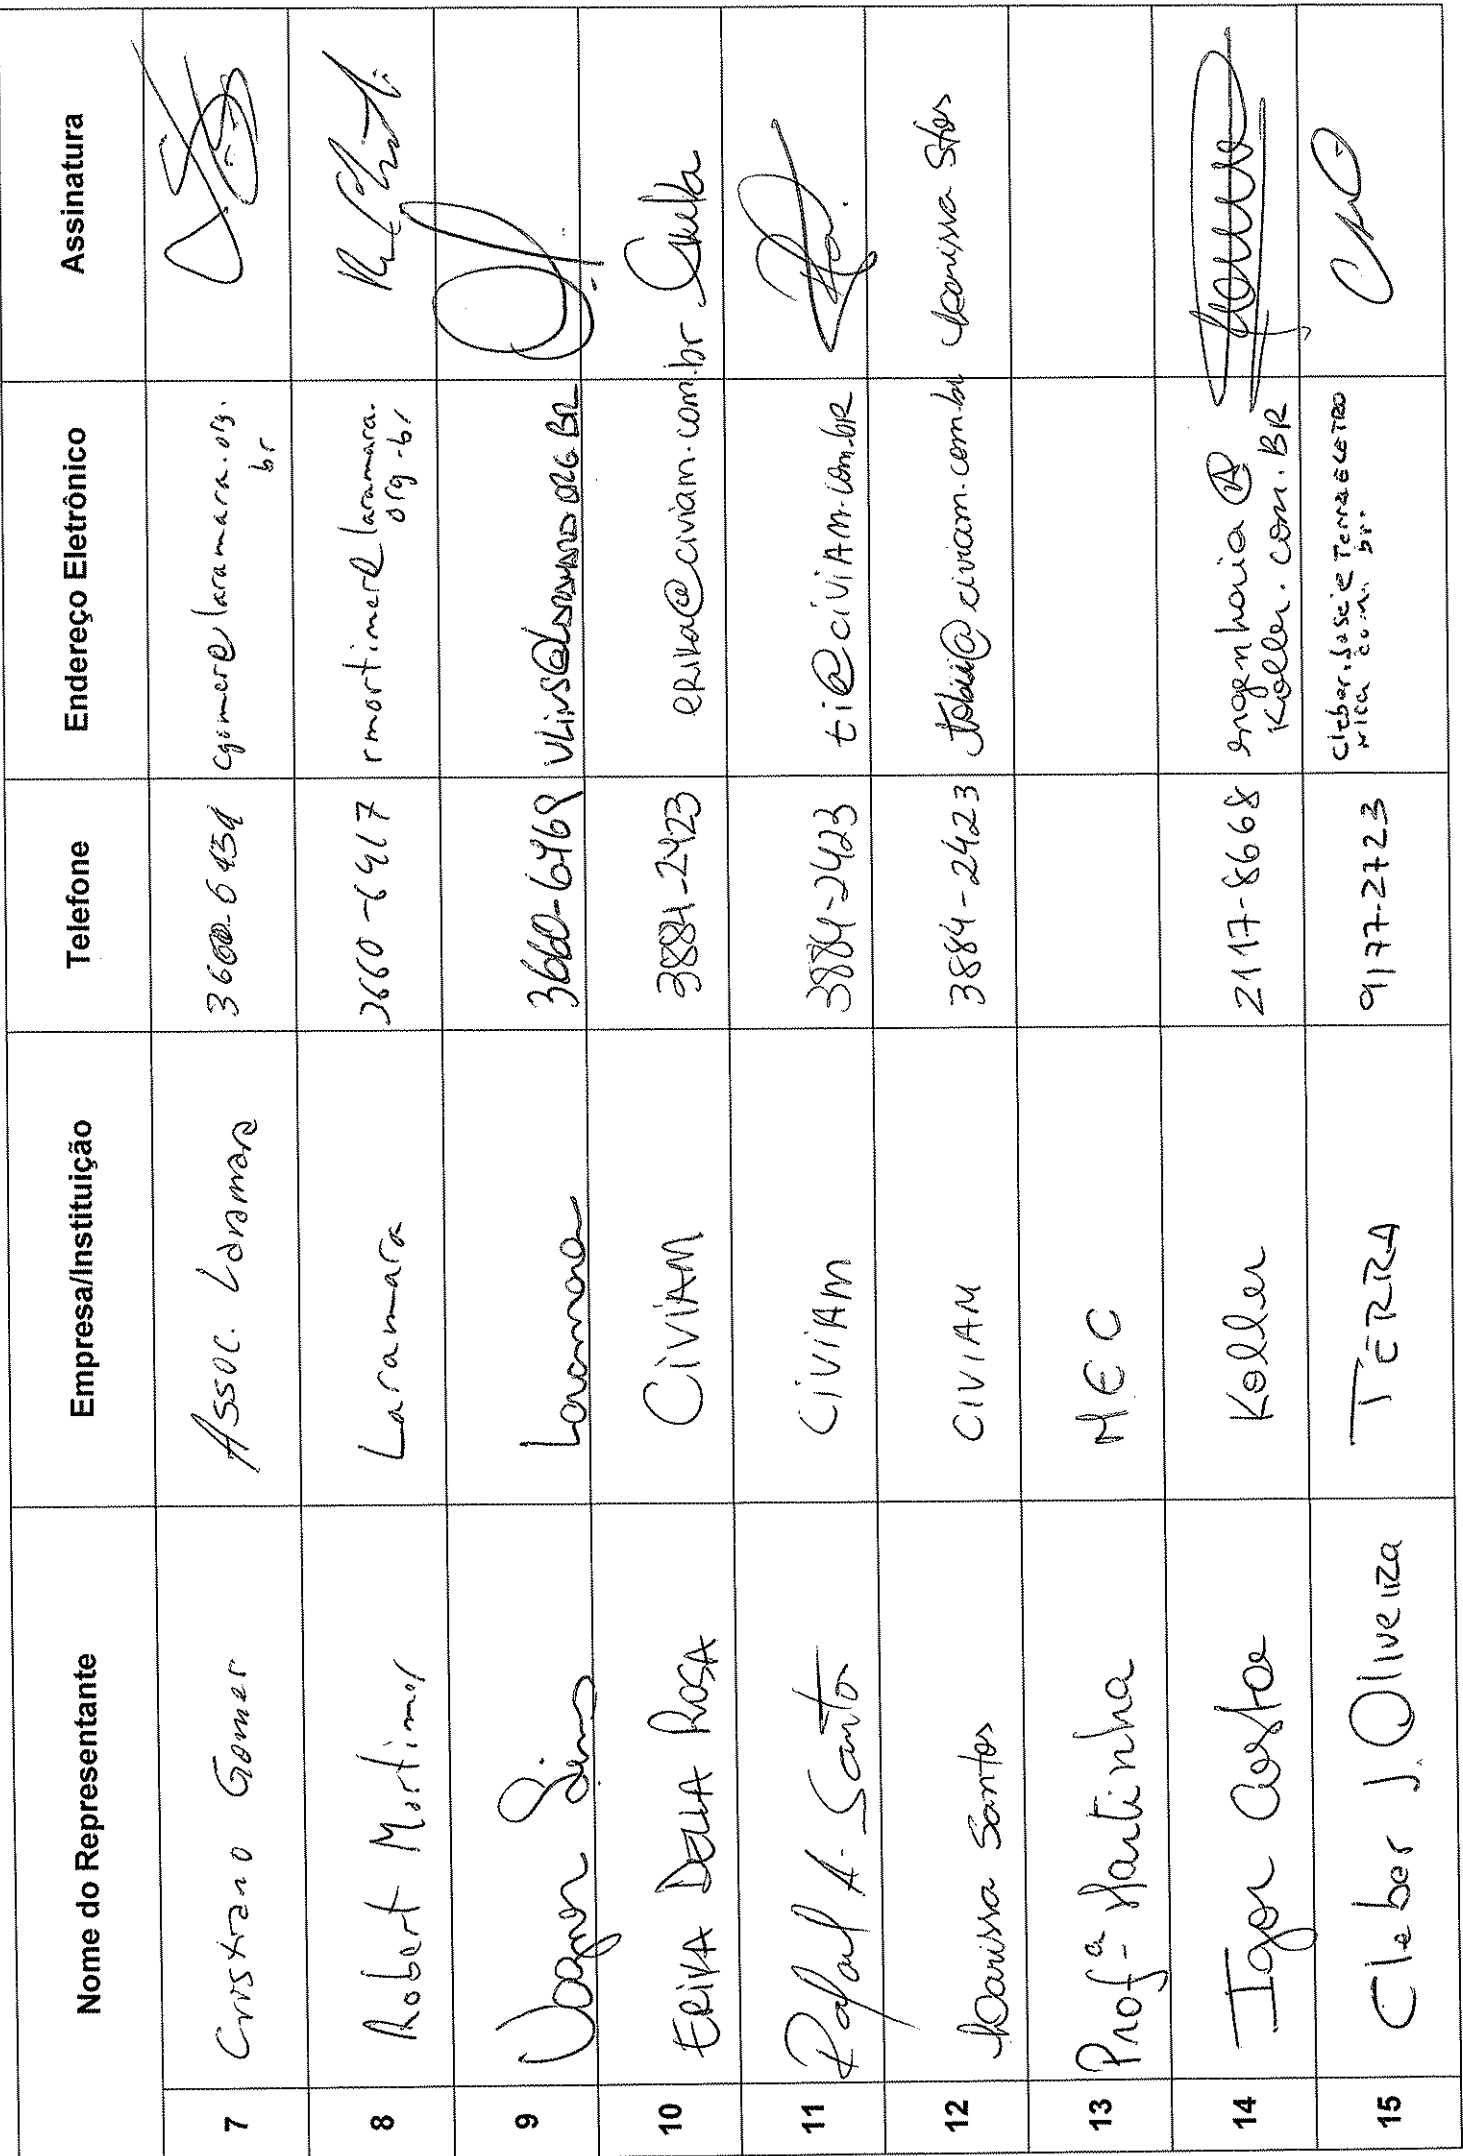 Nome do Representante Empresa/Instituição Telefone Endereço Eletrônico Assinatura
7 Cristiano Gomes Assoc. Laramara 3660-6454 cgomes@laramara.org.
br
8 Robert Mortimer Laramara 3660-6417 rmortimer@laramara.
org.br
9 Vagner Lins Laramara 3660-6469 VLINS@LARAMARA.ORG.BR
10 ERIKA DELLA ROSA CiviAM 3884-2423 eRiKa@civiam.com.br
11 Rafael A. Santos CiViAm 3884-2423 ti@civiAm.com.bR
12 Larissa Santos CIVIAM 3884-2423 tobii@civiam.com.br Larissa Stos
13 Profª Martinha MEC
14 Igor Costa Koller 2117-8668 engenharia@
Koller.com.BR
15 Cleber J. Oliveira TERRA 9177-2723 Cleber.Jose@TerraELETRO
Nica.com.br.